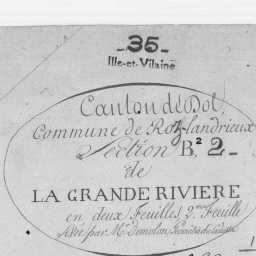 35
Ille-et-Vilaine
Canton de Dol
Commune de Roz-landrieux
Section B. 2
de
LA GRANDE RIVIERE
en deux Feuilles 2.me Feuille
Levée par Mr.